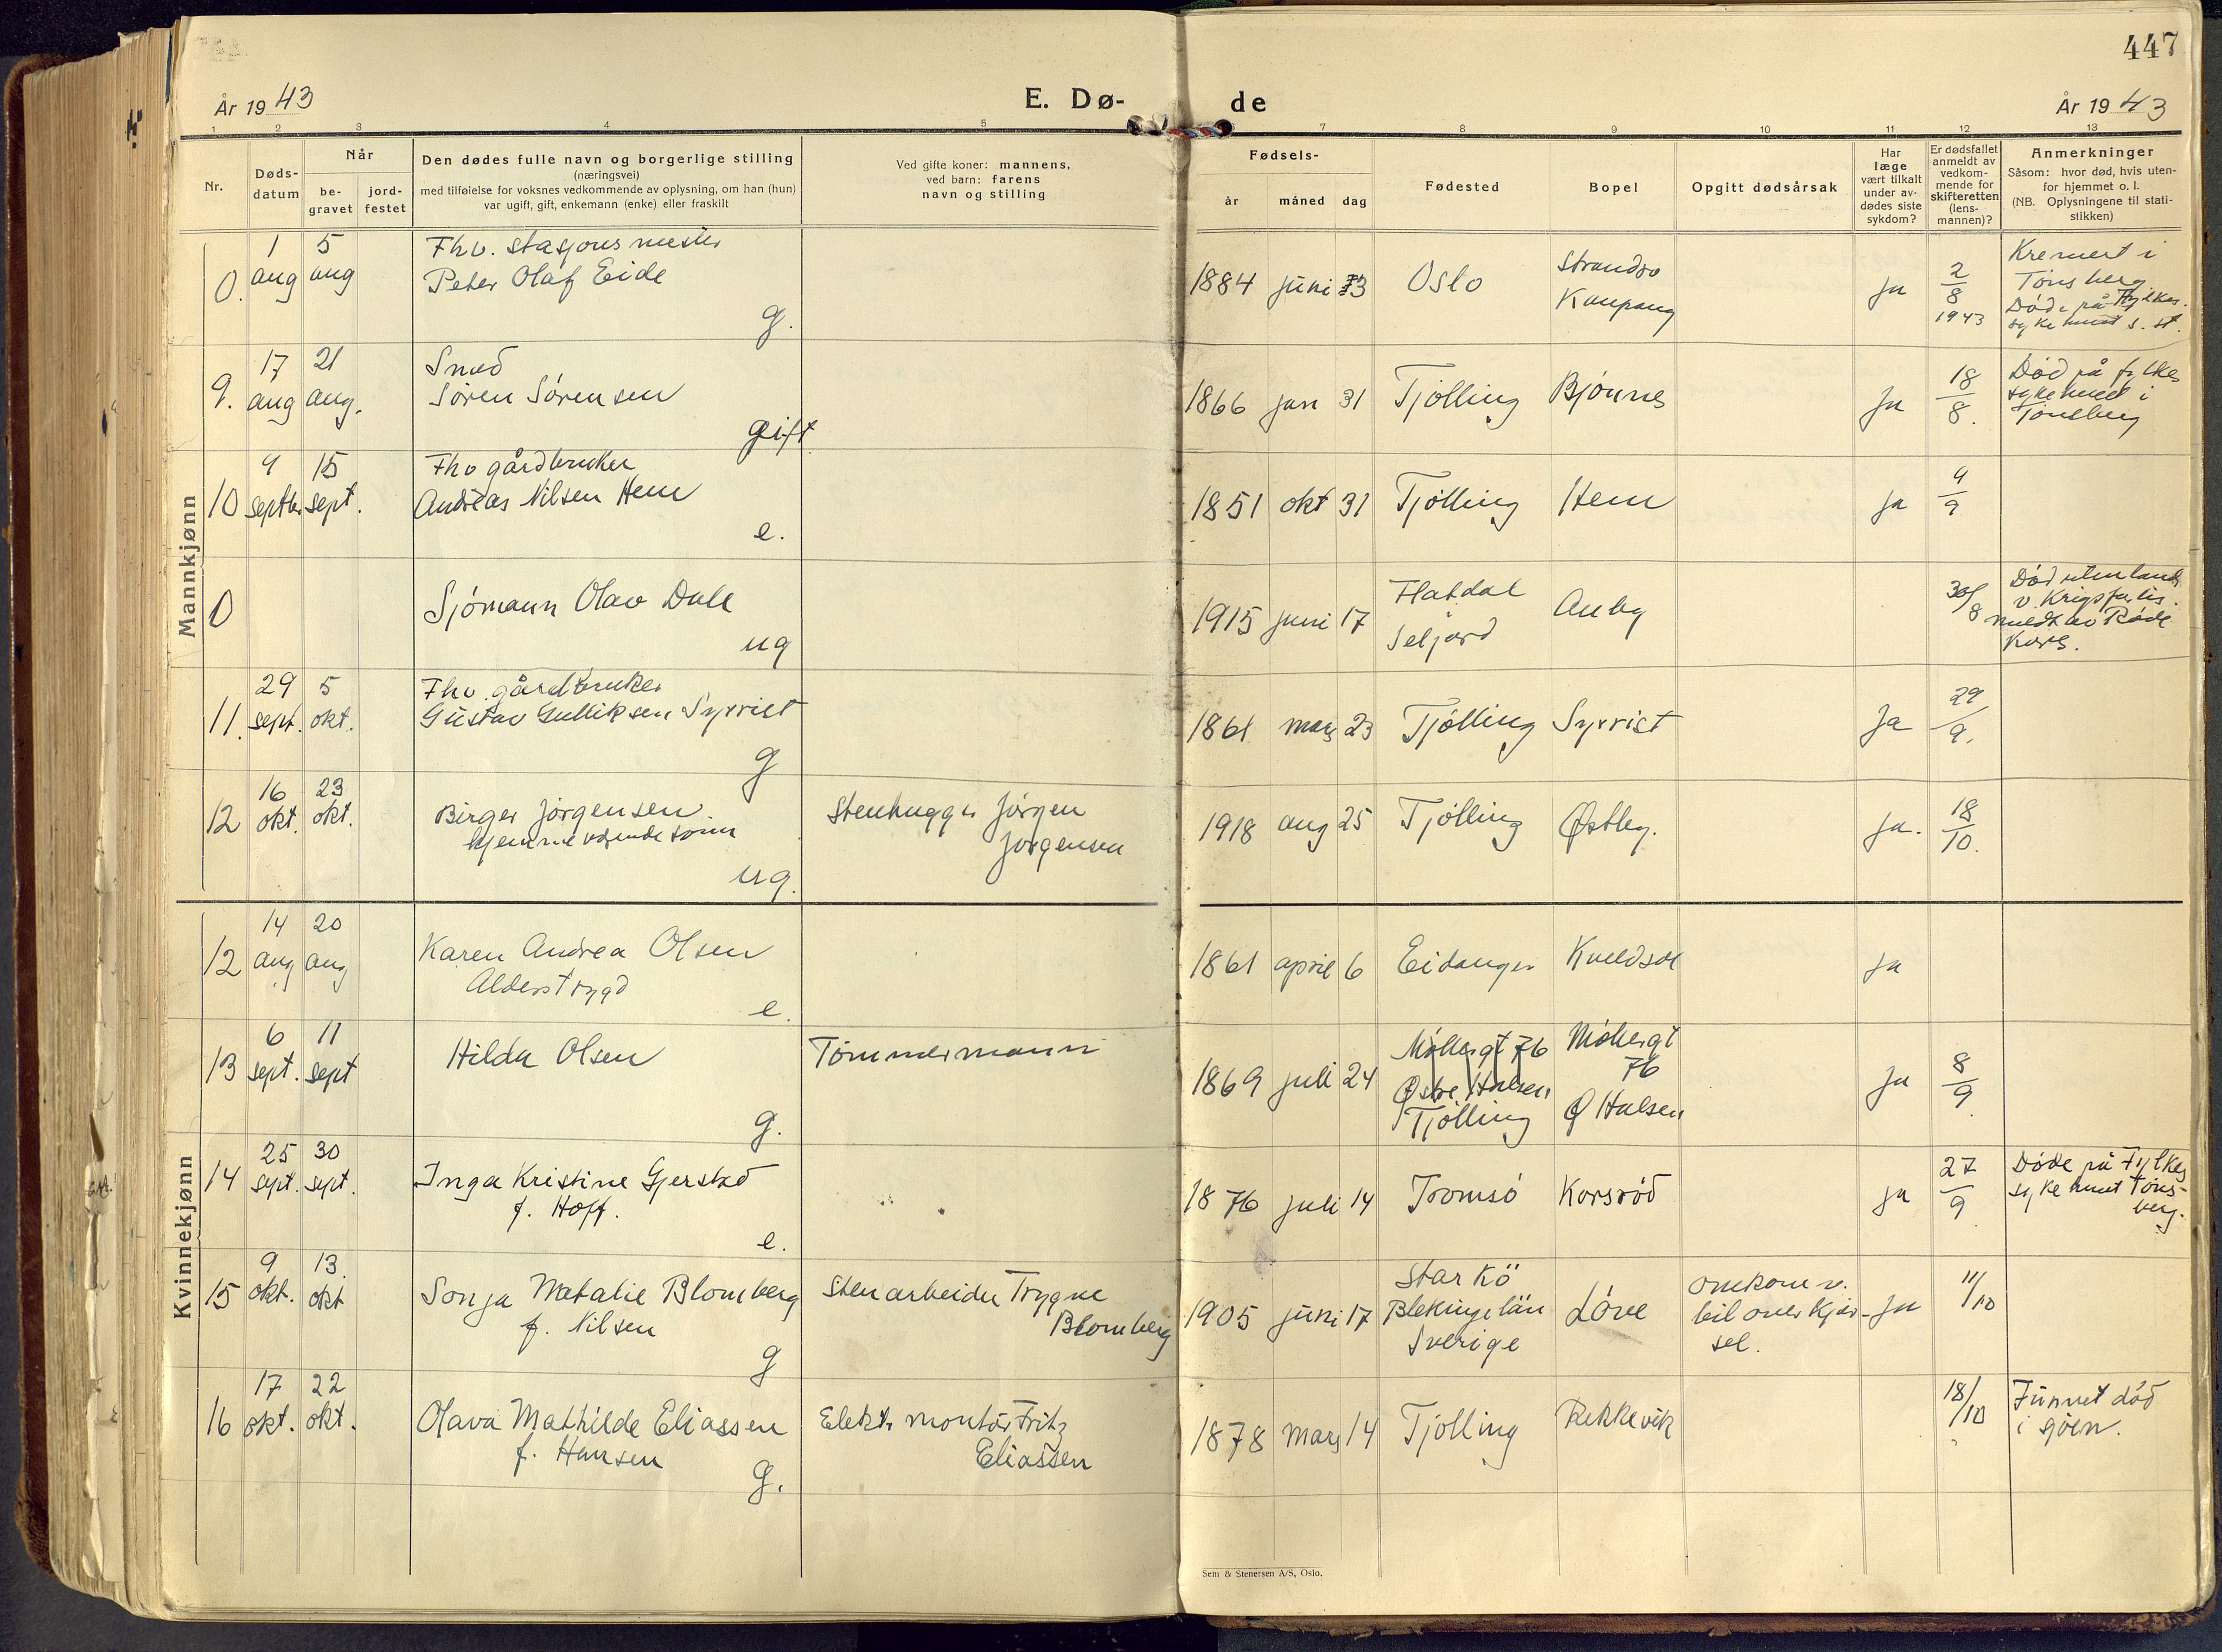 447
År 1943
E. Dø-
de
År 1943
1 2 3 4 5 7 8 9 10 11 12 13
Nr.
Døds-
datum
Når
be-
gravet
jord-
festet
Den dødes fulle navn og borgerlige stilling
(næringsvei)
med tilføielse for voksnes vedkommende av oplysning, om han (hun)
var ugift, gift, enkemann (enke) eller fraskilt
Ved gifte koner: mannens,
ved barn: farens
navn og stilling
Fødsels-
år måned dag
Fødested
Bopel
Opgitt dødsårsak
Har
læge
vært tilkalt
under av-
dødes siste
sykdom?
Er dødsfallet
anmeldt av
vedkom-
mende for
skifteretten
(lens-
mannen)?
Anmerkninger
Såsom: hvor død, hvis uten-
for hjemmet o. l.
(NB. Oplysningene til stati-
stikken)
Mannkjønn
0.
1
aug
5
aug
Fhv. stasjonsmester
Peter Olaf Eide
g.
1884 juni 13
Oslo
Kaupang
ja
2
8
1943
Kremert i
Tønsberg.
Døde på Fylkes.
sykehuset s. st.
9.
17
aug
21
aug.
Smed
Søren Sørensen
gift
1866 jan 31
Tjølling
Bjønnes
ja
18
8.
Død på fylkes
sykehuset i
Tønsberg
10
9
septbr
15
sept.
Fhv gårdbruker
Andreas Nilsen Hem
e.
1851 okt 31
Tjølling
Hem
ja
9
9
0
Sjømann Olav Dale
ug
1915 juni 17
Flatdal
Seljord
Auby
30/8
Død utenlands
v. Krigsforlis.
meldt av Røde
Kors.
11.
29
sept.
5
okt.
Fhv. gårdbruker
Gustav Gulliksen Syrrist
g
1861 mars 23
Tjølling
Syrrist
Ja
29
9.
12
16
okt.
23
okt.
Birger Jørgensen
hjemmeværende sønn
ug.
Stenhugger Jørgen
Jørgensen
1918 aug 25
Tjølling
Østby.
ja.
18
10.
Kvinnekjønn
12
14
aug
20
aug
Karen Andrea Olsen
Alderstrygd
e.
1861 april 6
Eidanger
Kveldsol
ja
13
6
sept.
11
sept
Hilda Olsen
g.
Tømmermann
1869 juli 24
Møllergt 76
Østre Halsen
Tjølling
Møllergt
76
Ø Halsen
ja
8
9
14
25
sept.
30
sept.
Inga Kristine Gjerstad
f. Hoff.
e.
1876 juli 14
Tromsø
Korsrød
ja
27
9
Døde på Fylkes
sykehuset Tøns-
berg.
15
9
okt.
13.
okt
Sonja Natalie Blomberg
f. Nilsen
g
Stenarbeider Trygve
Blomberg
1905 juni 17
Starkö
Blekinge län
Sverige
Løve
omkom v.
bil overkjør-
sel.
ja
11/10
16
17
okt.
22
okt.
Olava Mathilde Eliassen
f. Hansen
g.
Elektr montør Fritz
Eliassen
1878 mars 14
Tjølling
Rekkevik
18/10
Funnet død
i sjøen.
Sem & Stenersen A/S, Oslo.